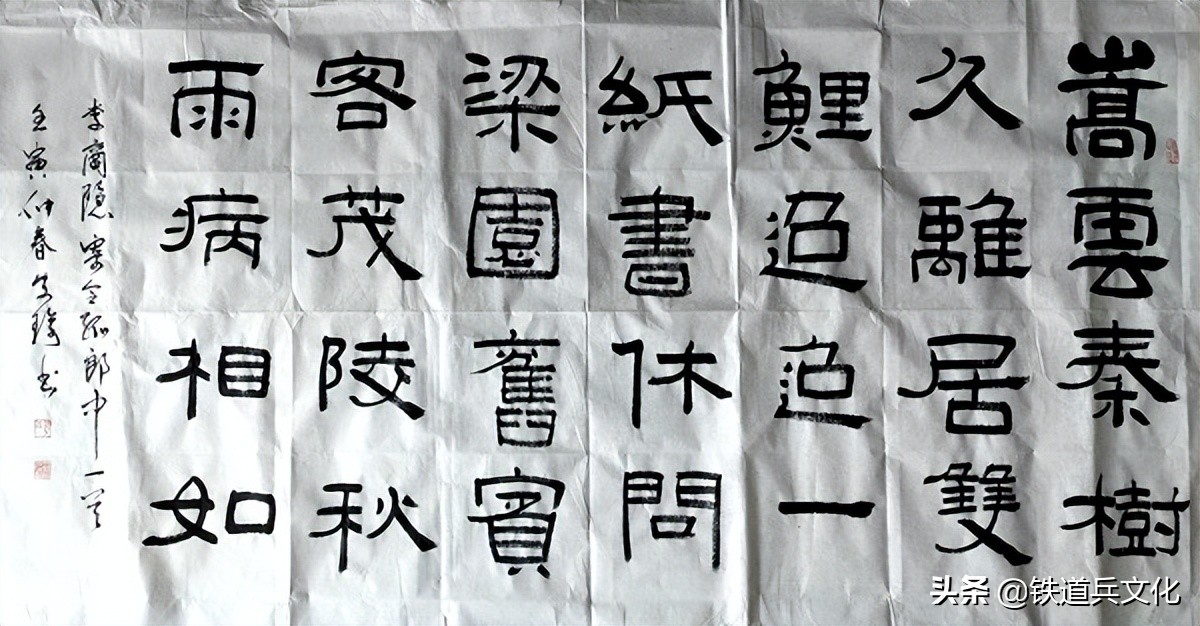 嵩雲秦樹
久離居雙
鯉迢迢一
紙書休問
梁園舊賓
客茂陵秋
雨病相如
李商隐寄令狐郎中一首
壬寅仲春书
头条 @铁道兵文化